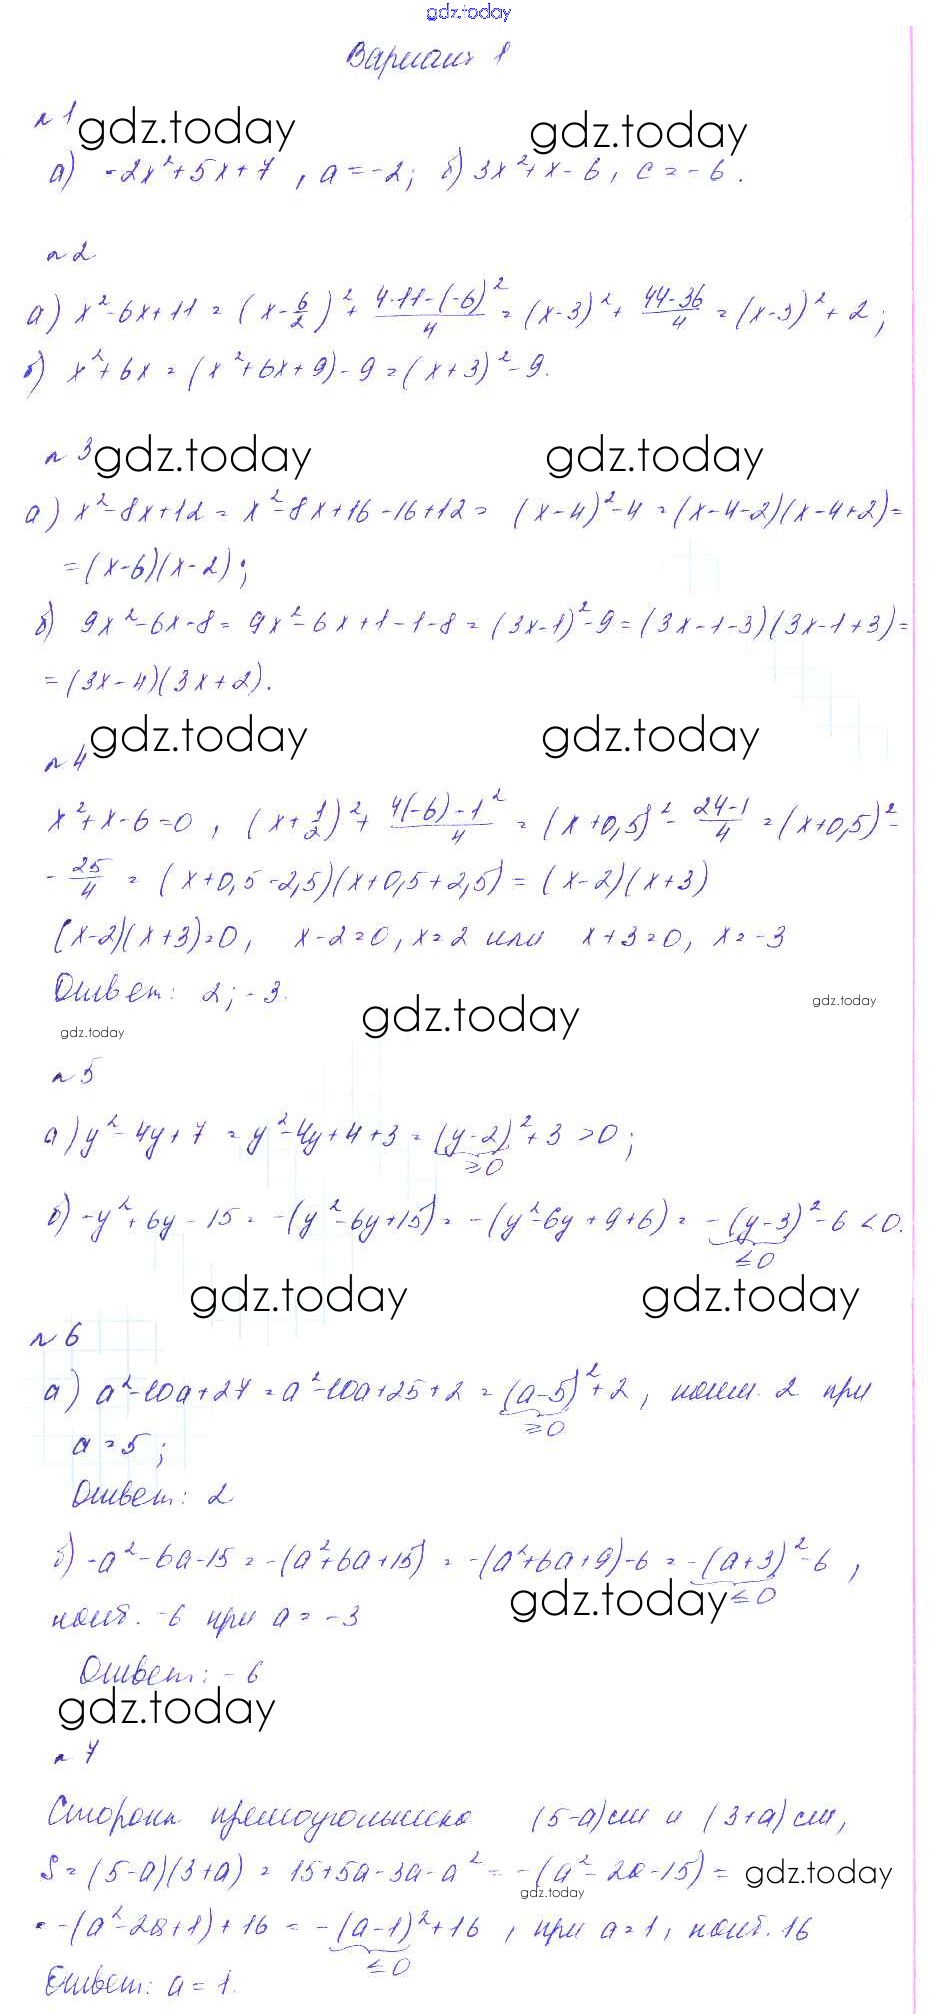 gdz.today
Вариант 1
№1 gdz.today gdz.today
а) -2x²+5x+7, a=-2; б) 3x²+x-6, c=-6.
№2
а) x²-6x+11 = (x-6/2)²+(4·11-(-6)²)/4 = (x-3)²+(44-36)/4 = (x-3)²+2;
б) x²+6x = (x²+6x+9)-9 = (x+3)²-9.
№3 gdz.today gdz.today
а) x²-8x+12 = x²-8x+16-16+12 = (x-4)²-4 = (x-4-2)(x-4+2) =
= (x-6)(x-2);
б) 9x²-6x-8 = 9x²-6x+1-1-8 = (3x-1)²-9 = (3x-1-3)(3x-1+3) =
= (3x-4)(3x+2).
№4 gdz.today gdz.today
x²+x-6=0, (x+1/2)²+(4(-6)-1²)/4 = (x+0,5)²-(24-1)/4 = (x+0,5)²-
-25/4 = (x+0,5-2,5)(x+0,5+2,5) = (x-2)(x+3)
(x-2)(x+3)=0, x-2=0, x=2 или x+3=0, x=-3
Ответ: 2; -3.
gdz.today gdz.today
gdz.today
№5
а) y²-4y+7 = y²-4y+4+3 = (y-2)²+3 >0;
≥0
б) -y²+6y-15 = -(y²-6y+15) = -(y²-6y+9+6) = -(y-3)²-6 <0.
≤0
gdz.today gdz.today
№6
а) a²-10a+27 = a²-10a+25+2 = (a-5)²+2, наим. 2 при
≥0
a=5;
Ответ: 2
б) -a²-6a-15 = -(a²+6a+15) = -(a²+6a+9)-6 = -(a+3)²-6,
gdz.today ≤0
наиб. -6 при a=-3
Ответ: -6
gdz.today
№7
Сторона прямоугольника (5-a)см и (3+a)см,
S = (5-a)(3+a) = 15+5a-3a-a² = -(a²-2a-15) = gdz.today
gdz.today
= -(a²-2a+1)+16 = -(a-1)²+16, при a=1, наиб. 16
≤0
Ответ: a=1.